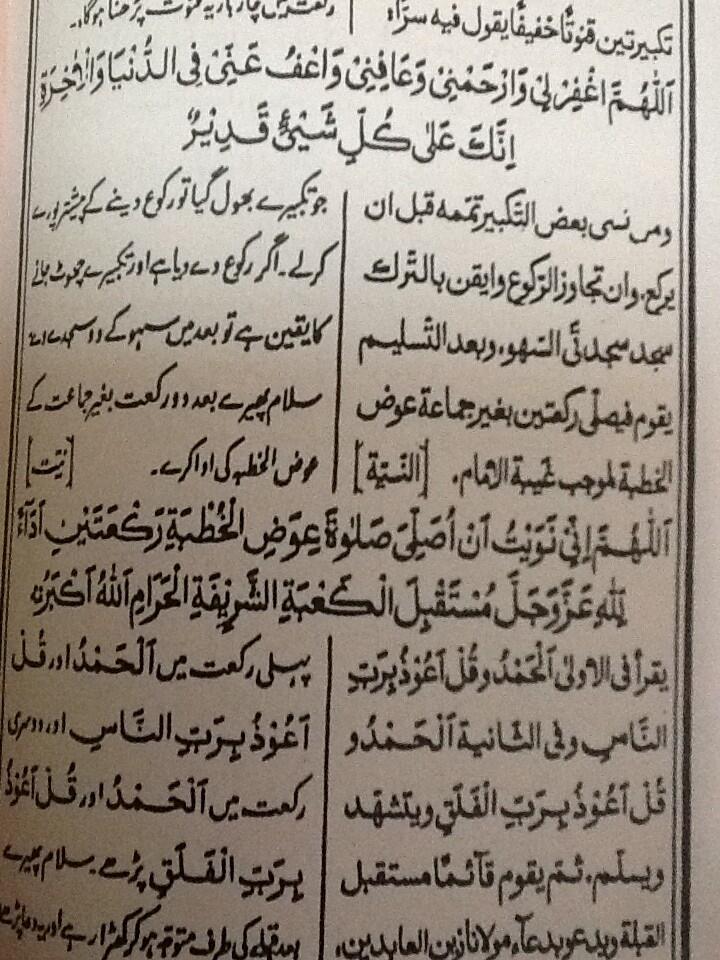 تكبيرتين قنوتًا خفيفًا يقول فيه سرًّا:
اَللّٰهُمَّ اغْفِرْ لِیْ وَارْحَمْنِیْ وَعَافِنِیْ وَاعْفُ عَنِّیْ فِی الدُّنْیَا وَالْاٰخِرَةِ
اِنَّكَ عَلٰی كُلِّ شَیْئٍ قَدِیْرٌ
ومن نسی بعض التکبیر تممه قبل ان
یرکع. وان تجاوز الرکوع وایقن بالترك
سجد سجدتَی السّهو، وبعد التّسلیم
یقوم فیصلّی رکعتین بغیر جماعة عوض
الخطبة لموجب غیبة الامام. [النّیّة]
جو تکبیرے بھول گیا تو رکوع دینے کے پیشتر پورے
کرلے۔ اگر رکوع دے دیا ہے اور تکبیرے چھوٹ جانے
کا یقین ہے تو بعد میں سہو کے دو سجدے دے
سلام پھیرے بعد دو رکعت بغیر جماعت کے
عوض الخطبہ کی ادا کرے۔ [نیّت]
اَللّٰهُمَّ اِنِّیْ نَوَیْتُ اَنْ اُصَلِّیَ صَلٰوةَ عِوَضِ الْخُطْبَةِ رَکْعَتَیْنِ اَدَآءً
لِلّٰهِ عَزَّ وَجَلَّ مُسْتَقْبِلَ الْکَعْبَةِ الشَّرِیْفَةِ الْحَرَامِ اَللّٰهُ اَکْبَرُ
یقرأ فی الاولیٰ اَلْحَمْدُ وقُلْ اَعُوْذُ بِرَبِّ
النَّاسِ وفی الثانیة اَلْحَمْدُ و
قُلْ اَعُوْذُ بِرَبِّ الْفَلَقِ ویتشهّد
ویسلّم. ثمّ یقوم قآئمًا مستقبل
القبلة ویدعو بدعآء مولانا زین العابدین،
پہلی رکعت میں اَلْحَمْدُ اور قُلْ
اَعُوْذُ بِرَبِّ النَّاسِ اور دوسری
رکعت میں اَلْحَمْدُ اور قُلْ اَعُوْذُ
بِرَبِّ الْفَلَقِ پڑھے۔ سلام پھیرے
بعد قبلے کی طرف متوجّہ ہو کر کھڑا رہے اور یہ دعا پڑھے